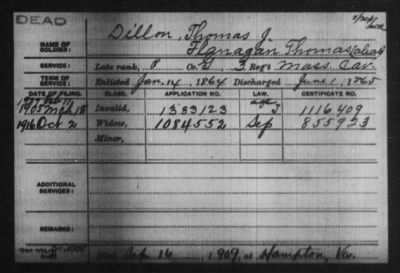 DEAD
Dillon, Thomas J.
NAME OF SOLDIER: Flanagan Thomas (alias)
SERVICE: Late rank, P Co. G 3 Reg't Mass. Cav.
TERM OF SERVICE: Enlisted Jan. 14, 1864 Discharged June 1, 1865
DATE OF FILING. CLASS. APPLICATION NO. LAW. CERTIFICATE NO.
1905 Mch 18 Invalid, 1383123 1116409
1916 Oct 2 Widow, 1084552 Sep 855923
Minor,
ADDITIONAL SERVICES:
REMARKS:
Died Sep. 16, 1909, at Hampton, Va.